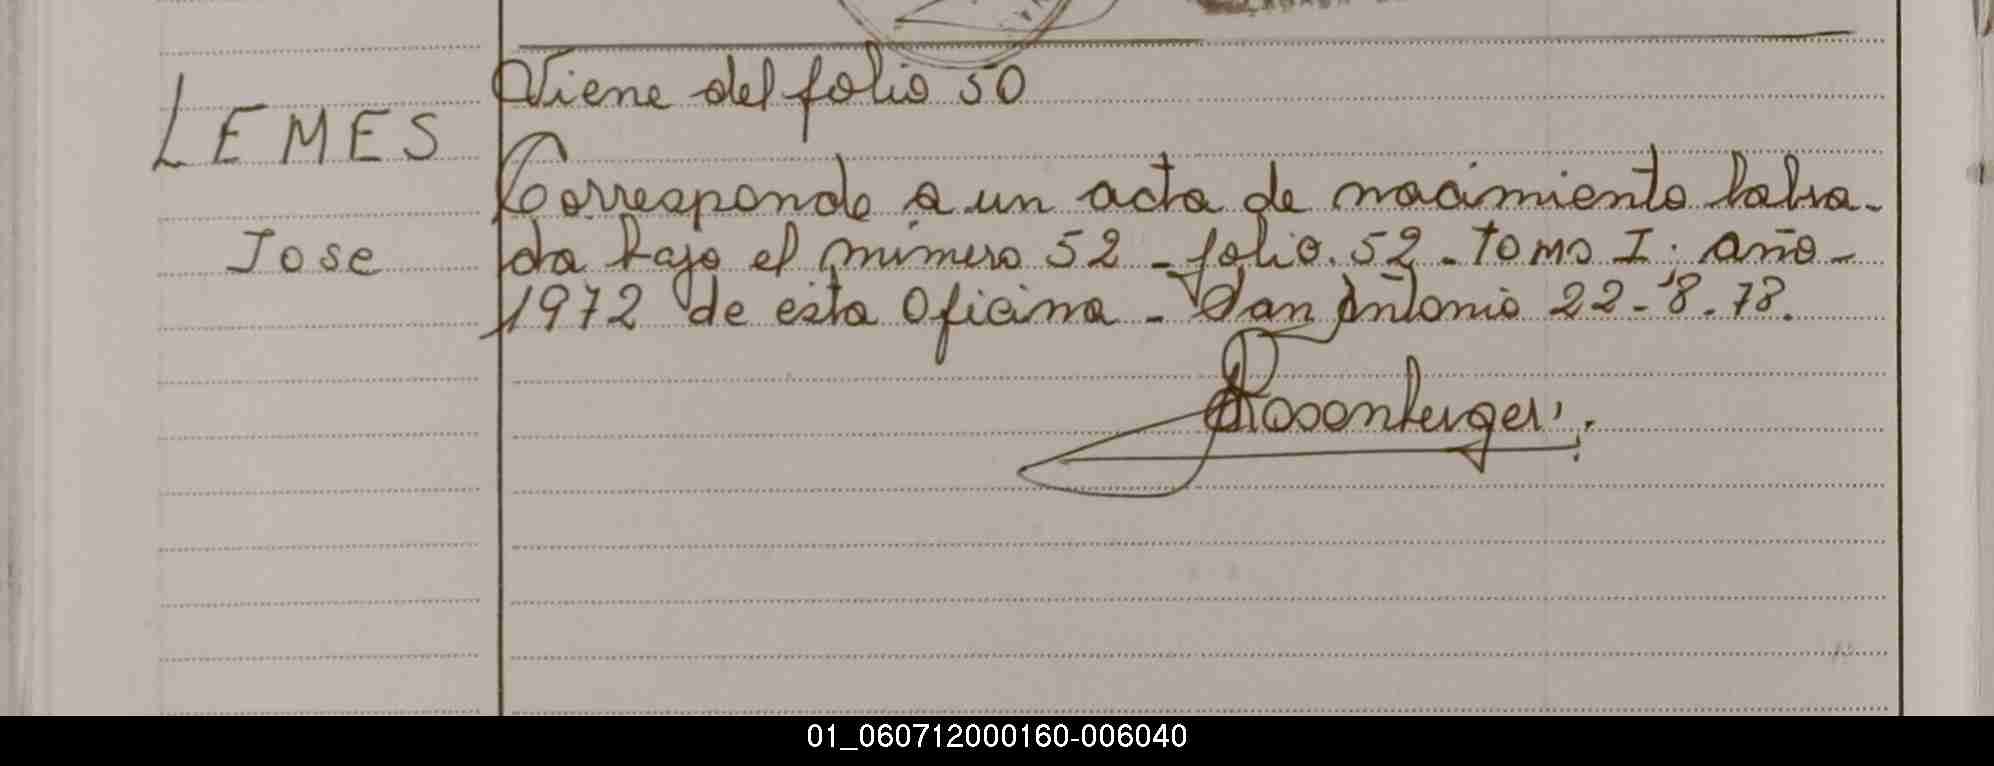 Viene del folio 50
LEMES
Corresponde a un acta de nacimiento labra-
Jose
da bajo el número 52 - folio. 52 - Tomo I. año -
1972 de esta Oficina - San Antonio 22-8-78.
Rosenberger
01_060712000160-006040